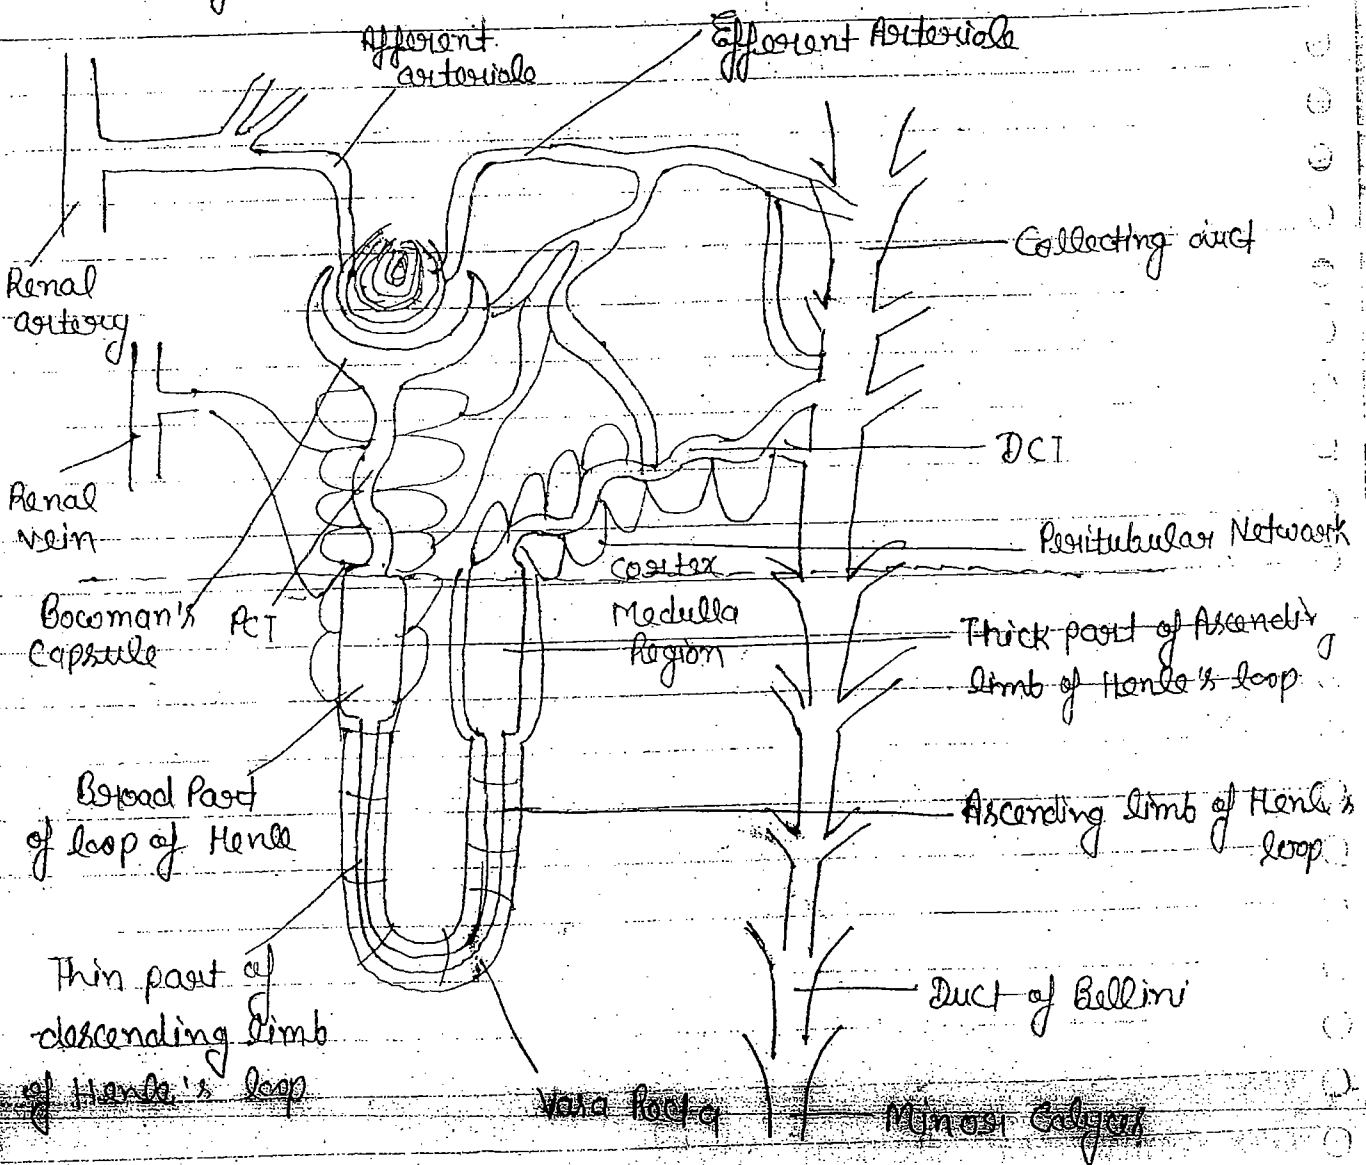 Afferent
arteriole
Efferent Arteriole
Renal
artery
Collecting duct
Renal
vein
DCT
Peritubular Network
Cortex
Medulla
Region
Bowman's
Capsule
PCT
Thick part of Ascending
limb of Henle's loop
Broad Part
of loop of Henle
Ascending limb of Henle's
loop
Thin part of
descending limb
of Henle's loop
Duct of Bellini
Vasa Recta
Minor Calyces